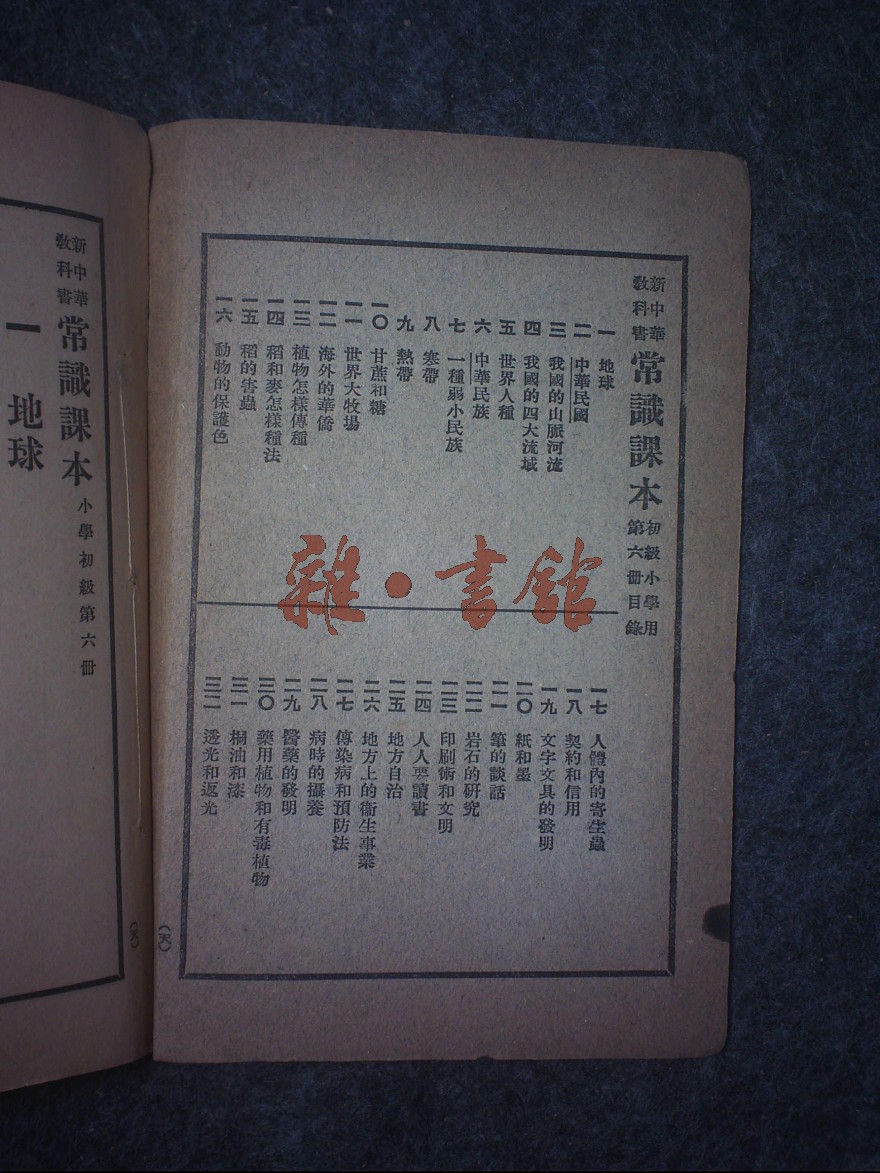 新中華
教科書
常識課本
初級小學用
第六冊目錄
一 地球
二 中華民國
三 我國的山脈河流
四 我國的四大流域
五 世界人種
六 中華民族
七 一種弱小民族
八 寒帶
九 熱帶
一〇 甘蔗和糖
一一 世界大牧場
一二 海外的華僑
一三 植物怎樣傳種
一四 稻和麥怎樣種法
一五 稻的害蟲
一六 動物的保護色
一七 人體內的寄生蟲
一八 契約和信用
一九 文字文具的發明
二〇 紙和墨
二一 筆的談話
二二 岩石的研究
二三 印刷術和文明
二四 人人要讀書
二五 地方自治
二六 地方上的衞生事業
二七 傳染病和預防法
二八 病時的攝養
二九 醫藥的發明
三〇 藥用植物和有毒植物
三一 桐油和漆
三二 透光和返光
(天)
雜·書館
新中華
教科書
常識課本
小學初級第六冊
一 地球
(天)